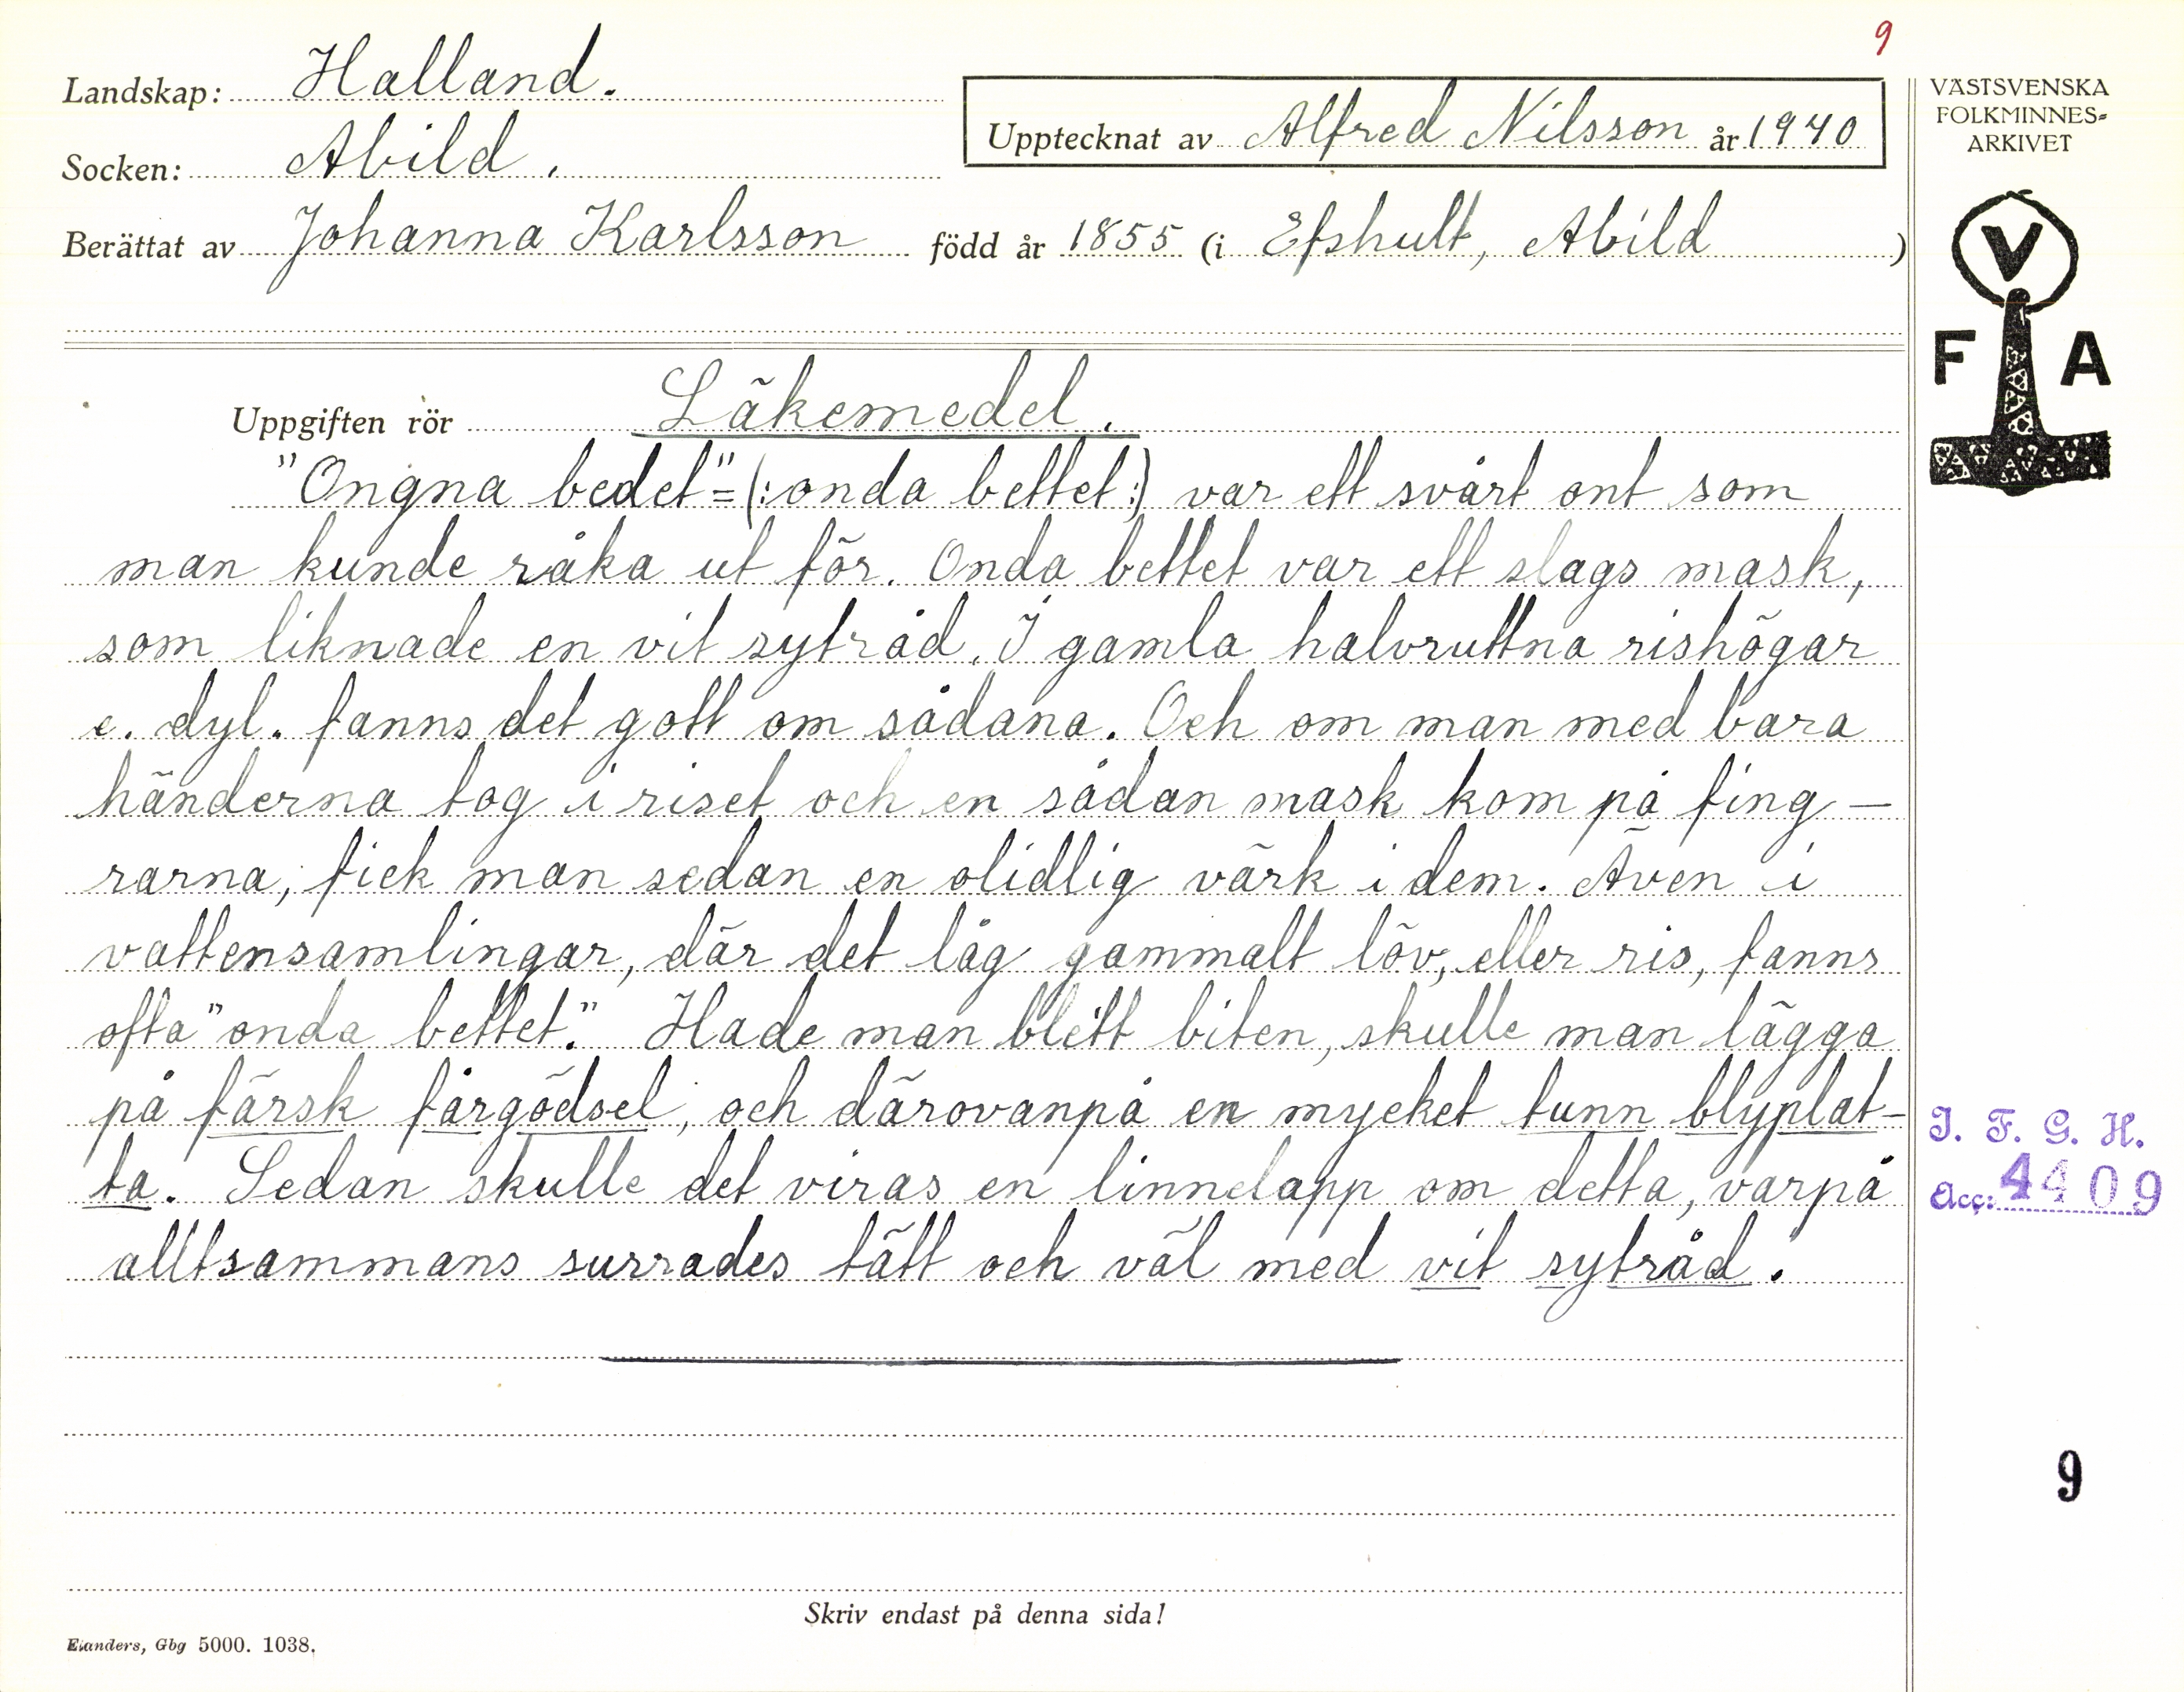 9
Landskap: Halland.
Socken: Abild.
Upptecknat av Alfred Nilsson år 1940
Berättat av Johanna Karlsson född år 1855 (i Efshult, Abild )
VÄSTSVENSKA
FOLKMINNES=
ARKIVET
V
F A
Uppgiften rör Läkemedel.
"Ongna bedet"=(:onda bettet:) var ett svårt ont som
man kunde råka ut för. Onda bettet var ett slags mask,
som liknade en vit sytråd. I gamla halvruttna rishögar
e. dyl. fanns det gott om sådana. Och om man med bara
händerna tog i riset och en sådan mask kom på fing-
rarna, fick man sedan en olidlig värk i dem. Även i
vattensamlingar, där det låg gammalt löv, eller ris, fanns
ofta "onda bettet." Hade man blitt biten, skulle man lägga
på färsk fårgödsel, och därovanpå en mycket tunn blyplat-
ta. Sedan skulle det viras en linnelapp om detta, varpå
alltsammans surrades tätt och väl med vit sytråd.
I. F. G. H.
Acc: 4409
9
Skriv endast på denna sida!
Elanders, Gbg 5000. 1038.